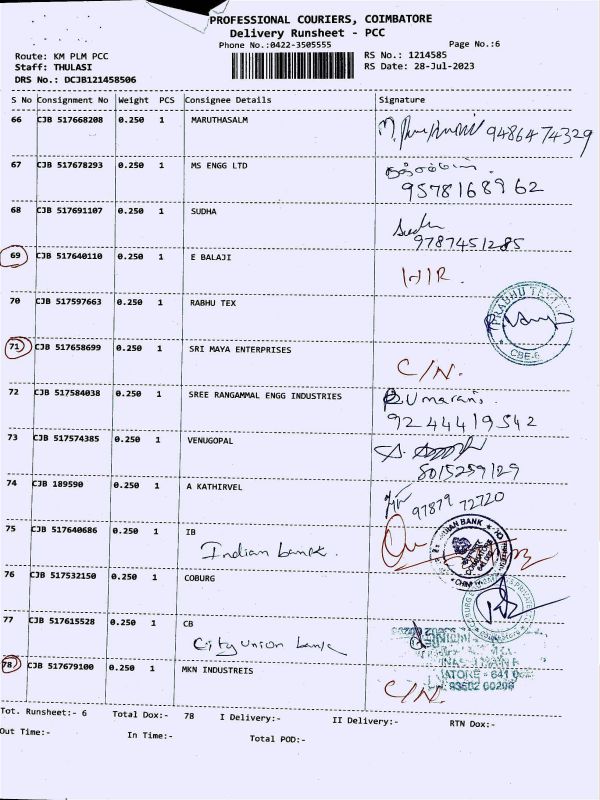 PROFESSIONAL COURIERS, COIMBATORE
Delivery Runsheet - PCC
Phone No.:0422-3505555 Page No.:6
Route: KM PLM PCC RS No.: 1214585
Staff: THULASI RS Date: 28-Jul-2023
DRS No.: DCJB121458506
S No Consignment No Weight PCS Consignee Details Signature
66 CJB 517668208 0.250 1 MARUTHASALM 9486474329
67 CJB 517678293 0.250 1 MS ENGG LTD
9578168962
68 CJB 517691107 0.250 1 SUDHA Sudha
9787451285
69 CJB 517640110 0.250 1 E BALAJI H/R.
70 CJB 517597663 0.250 1 RABHU TEX PRABHU TEX
CBE-6
71 CJB 517658699 0.250 1 SRI MAYA ENTERPRISES C/N.
72 CJB 517584038 0.250 1 SREE RANGAMMAL ENGG INDUSTRIES
9244419542
73 CJB 517574385 0.250 1 VENUGOPAL
8015259129
74 CJB 189590 0.250 1 A KATHIRVEL 97879 72720
75 CJB 517640686 0.250 1 IB
Indian bank.
76 CJB 517532150 0.250 1 COBURG
77 CJB 517615528 0.250 1 CB
City union bank
78 CJB 517679100 0.250 1 MKN INDUSTREIS C/N.
Tot. Runsheet:- 6 Total Dox:- 78 I Delivery:- II Delivery:- RTN Dox:-
Out Time:- In Time:- Total POD:-